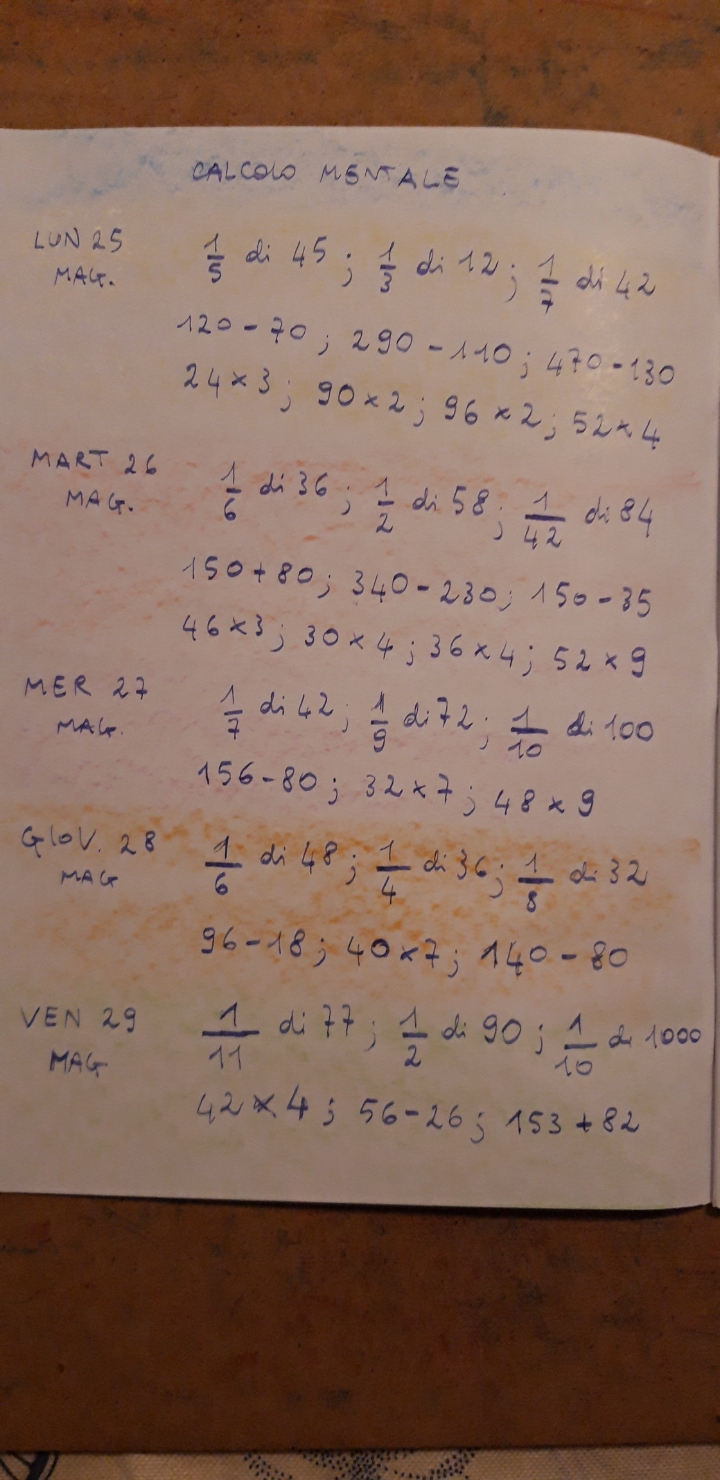 CALCOLO MENTALE
LUN 25 1/5 di 45 ; 1/3 di 12 ; 1/7 di 42
MAG.
120-70 ; 290-110 ; 470-130
24×3 ; 90×2 ; 96×2 ; 52×4
MART 26 1/6 di 36 ; 1/2 di 58 ; 1/42 di 84
MAG.
150+80 ; 340-230 ; 150-35
46×3 ; 30×4 ; 36×4 ; 52×9
MER 27 1/7 di 42 ; 1/9 di 72 ; 1/10 di 100
MAG.
156-80 ; 32×7 ; 48×9
GIOV. 28 1/6 di 48 ; 1/4 di 36 ; 1/8 di 32
MAG
96-18 ; 40×7 ; 140-80
VEN 29 1/11 di 77 ; 1/2 di 90 ; 1/10 di 1000
MAG
42×4 ; 56-26 ; 153+82